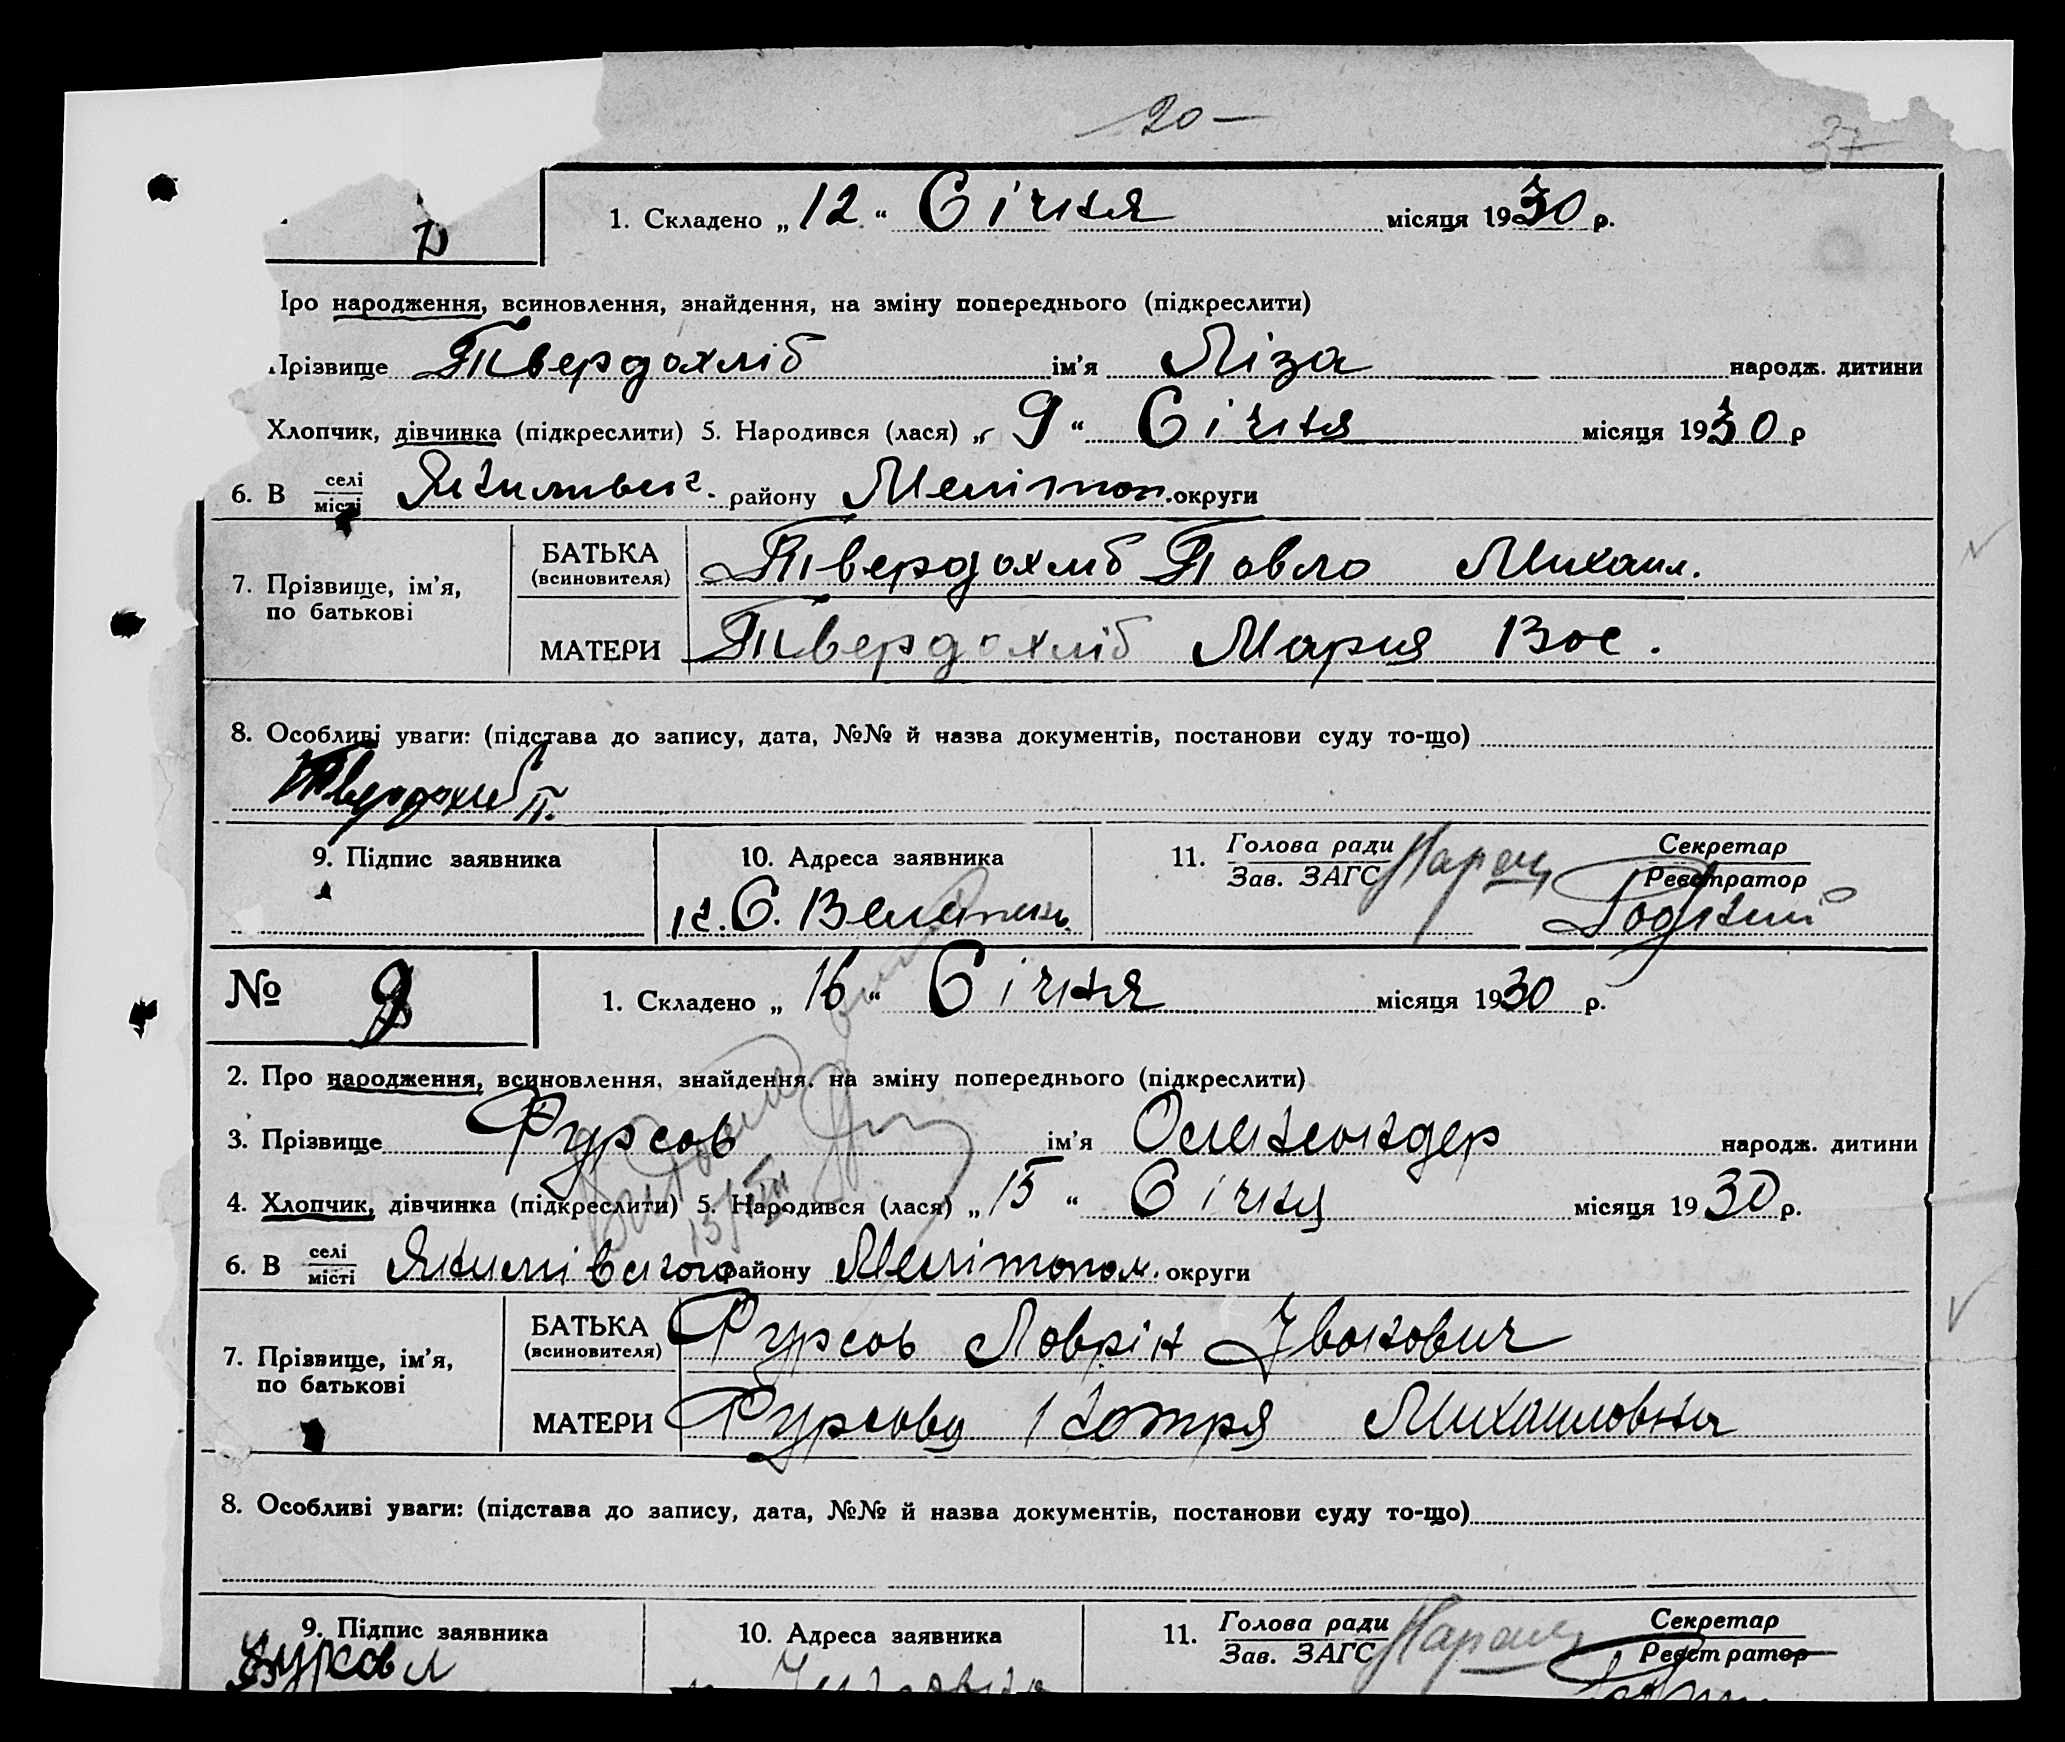 20 —
37
1. Складено „ 12 “ Січня місяця 1930 р.
Іро народження, всиновлення, знайдення, на зміну попереднього (підкреслити)
Прізвище Твердохліб ім’я Ліза народж. дитини
Хлопчик, дівчинка (підкреслити) 5. Народився (лася) „ 9 “ Січня місяця 1930 р
6. В селі місті Якимівськ. району Мелітоп. округи
7. Прізвище, ім’я, по батькові
БАТЬКА (всиновителя) Твердохліб Павло Михаил.
МАТЕРИ Твердохліб Мария Вас.
8. Особливі уваги: (підстава до запису, дата, №№ й назва документів, постанови суду то-що)
Твердохліб П.
9. Підпис заявника 10. Адреса заявника 11. Голова ради Зав. ЗАГС Секретар Реєстратор
№ 9 1. Складено „ 16 “ Січня місяця 1930 р.
2. Про народження, всиновлення, знайдення, на зміну попереднього (підкреслити)
3. Прізвище Фурсов ім’я Олександер народж. дитини
4. Хлопчик, дівчинка (підкреслити) 5. Народився (лася) „ 15 “ Січня місяця 1930 р.
6. В селі місті Якимівського району Мелітопол. округи
7. Прізвище, ім’я, по батькові
БАТЬКА (всиновителя) Фурсов Лаврін Іванович
МАТЕРИ Фурсова Катря Михаиловна
8. Особливі уваги: (підстава до запису, дата, №№ й назва документів, постанови суду то-що)
9. Підпис заявника 10. Адреса заявника 11. Голова ради Зав. ЗАГС Секретар Реєстратор
Фурсов Л